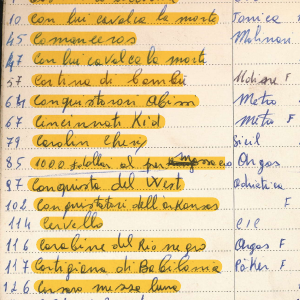 10 Con lui cavalca la morte Jonica M
45 Comanceros Molinari
47 Con lui cavalca la morte
57 Cortina di bambù F
64 Conquistatori Abissi Metro
67 Cincinnati Kid Metro F
79 Carolin Chery Sicil
85 1000 dollari al Orgas
97 Conquista del West Adriatica
102 Conquistatori dell'arkansas F
114 Cervello CIC
116 Carabine del Rio negro Orgas F
117 Cortigiana di Babilonia Poker F
126 Corsaro mezza luna